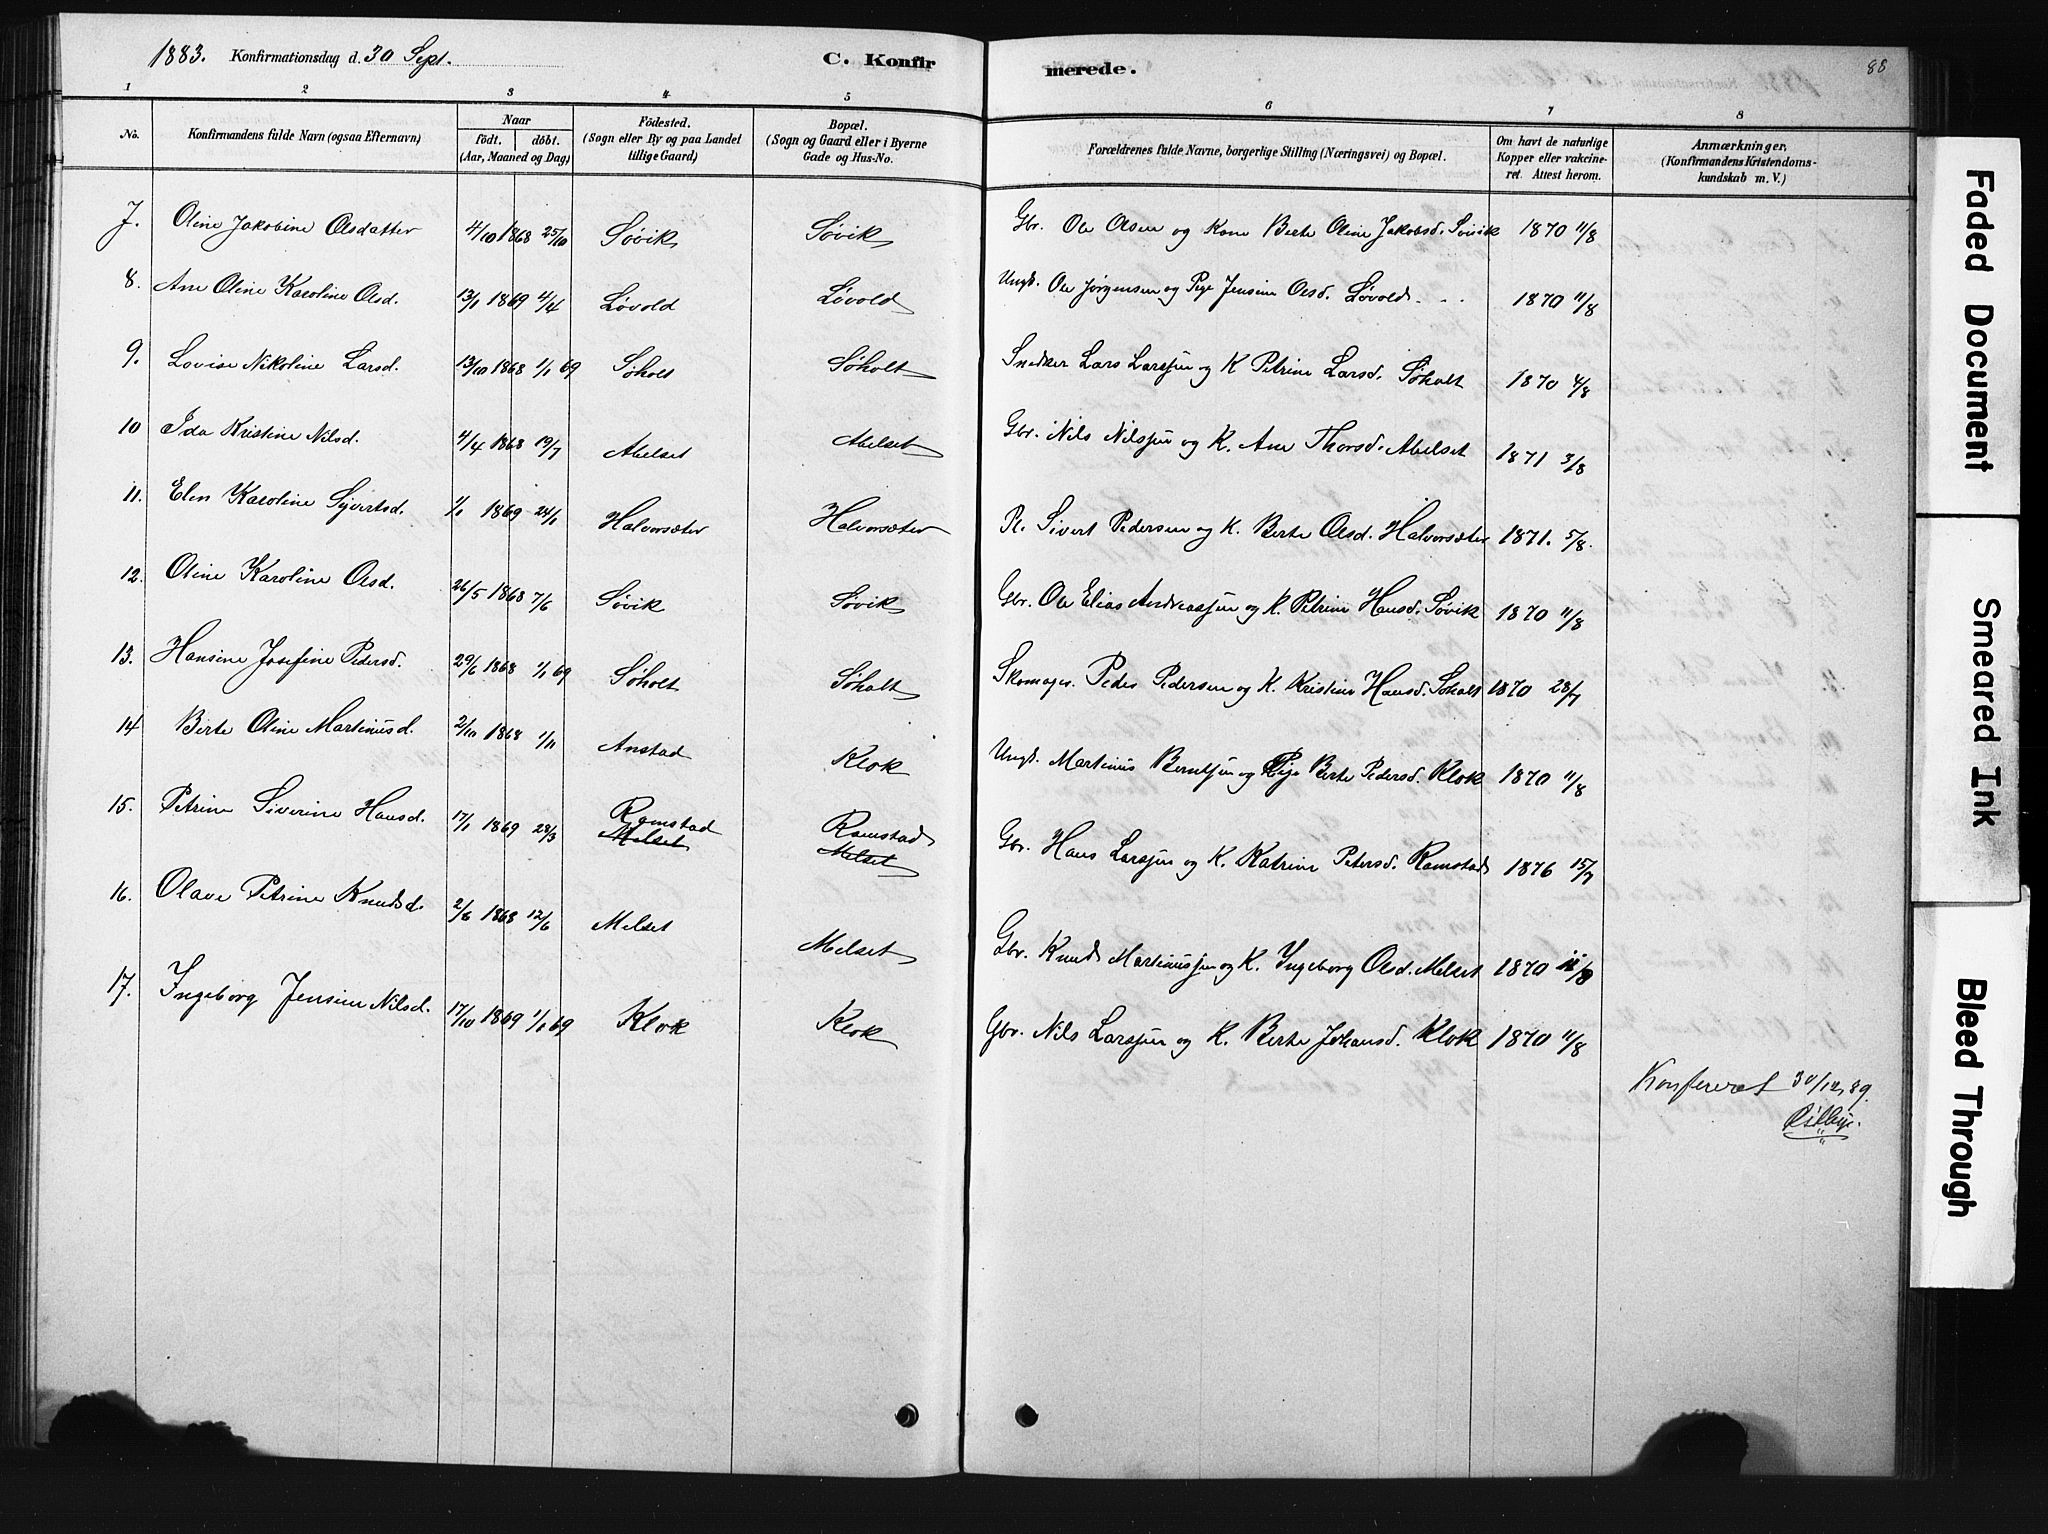 1883. Konfirmationsdag d. 30 Sept. C. Konfirmerede. 88
1 2 3 4 5 6 7 8
No. Konfirmandens fulde Navn (ogsaa Efternavn) Naar födt. döbt. (Aar, Maaned og Dag) Födested. (Sogn eller By og paa Landet tillige Gaard) Bopæl. (Sogn og Gaard eller i Byerne Gade og Hus-No. Forældrenes fulde Navne, borgerlige Stilling (Næringsvei) og Bopæl. Om havt de naturlige Kopper eller vakcineret. Attest herom. Anmærkninger. (Konfirmandens Kristendomskundskab m. V.)
7. Oline Jakobine Olsdatter 4/10 1868 25/10 Søvik Søvik Gbr. Ole Olsen og Kone Berte Oline Jakobsd. Søvik 1870 11/8
8. Ane Oline Karoline Olsd. 13/1 1869 4/4 Løvold Løvold Ungk. Ole Jørgensen og Pige Jensine Olsd. Løvold 1870 11/8
9. Lovise Nikoline Larsd. 13/10 1868 1/1 69 Søholt Søholt Snedker Lars Larssen og K Petrine Larsd. Søholt 1870 4/8
10 Ida Kristine Nilsd. 4/4 1868 19/7 Abelset Abelset Gbr. Nils Nilssen og K. Ane Thorsd. Abelset 1871 3/8
11. Elen Karoline Syvertsd. 1/1 1869 24/1 Halvorsæter Halvorsæter Pl. Sivert Pedersen og K. Berte Olsd. Halvorsæter 1871. 5/8.
12. Oline Karoline Olsd. 26/5 1868 7/6 Søvik Søvik Gbr. Ole Elias Andreassen og K. Petrine Hansd. Søvik 1870 11/8
13. Hansine Josefine Pedersd. 29/6 1868 1/1 69 Søholt Søholt Skomager. Peder Pedersen og K. Kristine Hansd. Søholt 1870 28/7
14 Berte Oline Martinusd. 2/10 1868 1/11 Anstad Klok Ungk. Martinus Berntsen og Pige Berte Pedersd. Klok 1870 11/8
15. Petrine Siverine Hansd. 17/1 1869 28/3 Ramstad Melset Ramstad Melset Gbr. Hans Larssen og K. Katrine Petersd. Ramstad 1876 15/7
16. Olave Petrine Knudsd. 2/6 1868 12/6 Melset Melset Gbr. Knud Martinussen og K. Ingeborg Olsd. Melset 1870 11/8
17. Ingeborg Jensine Nilsd. 17/10 1869 1/1 69 Klok Klok Gbr. Nils Larssen og K. Berte Johansd. Klok 1870 11/8
Konfereret 30/12, 89.
Faded Document
Smeared Ink
Bleed Through